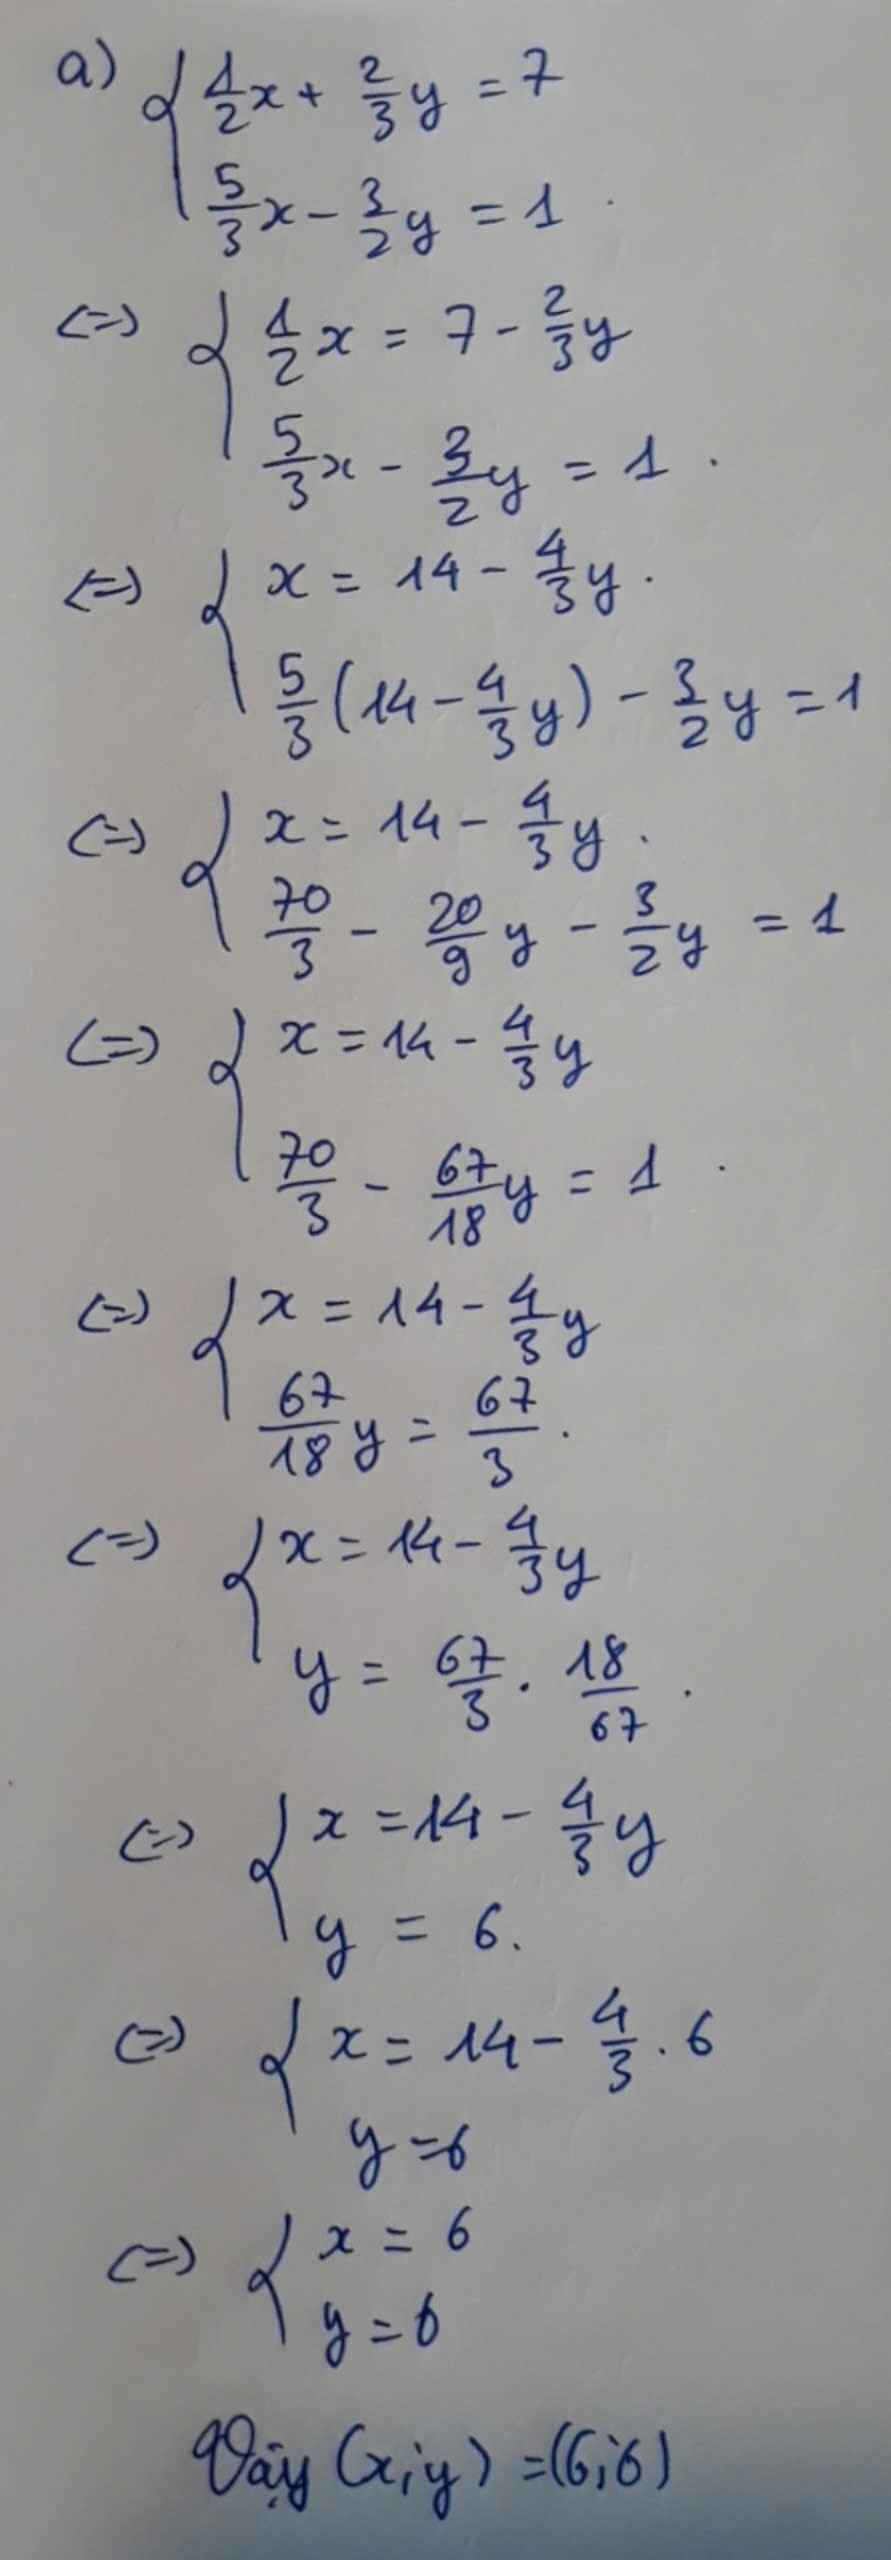 a) { 1/2 x + 2/3 y = 7
5/3 x - 3/2 y = 1 .
<=> { 1/2 x = 7 - 2/3 y
5/3 x - 3/2 y = 1 .
<=> { x = 14 - 4/3 y .
5/3 (14 - 4/3 y) - 3/2 y = 1
<=> { x = 14 - 4/3 y .
70/3 - 20/9 y - 3/2 y = 1
<=> { x = 14 - 4/3 y
70/3 - 67/18 y = 1 .
<=> { x = 14 - 4/3 y
67/18 y = 67/3 .
<=> { x = 14 - 4/3 y
y = 67/3 . 18/67 .
<=> { x = 14 - 4/3 y
y = 6.
<=> { x = 14 - 4/3 . 6
y = 6
<=> { x = 6
y = 6
Vậy (x;y) = (6;6)